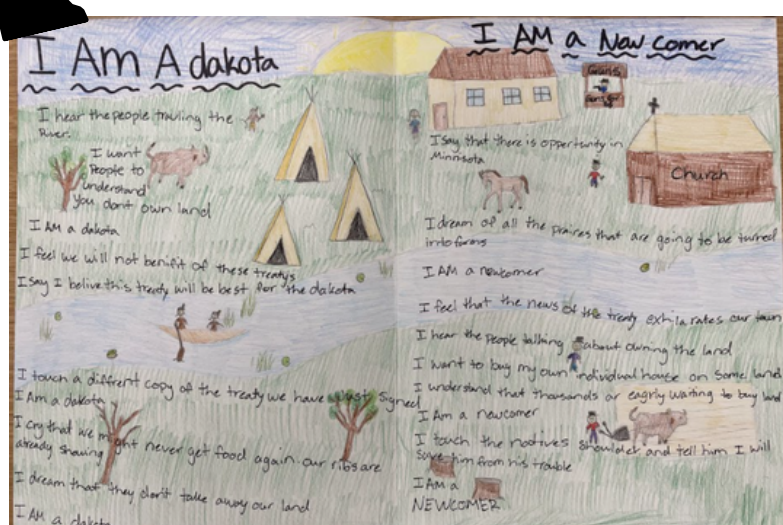 I Am A dakota
I hear the people travling the
River.
I want
People to
understand
you dont own land
I AM a dakota
I feel we will not benifit of these treatys
I say I belive this treaty will be best for the dakota
I touch a diffrent copy of the treaty we have just signed
I Am a dakota
I cry that we might never get food again. our ribs are
already showing
I dream that they don't take away our land
I AM a dakota
I AM a New comer
Guns
I say that there is opportunity in
Minnisota
Church
I dream of all the praires that are going to be turned
into farms
I AM a newcomer
I feel that the news of the treaty exhilarates our town
I hear the people talking about owning the land
I want to buy my own individual house on some land
I understand that thousands ar eagrly waiting to buy land
I Am a newcomer
I touch the nootives shoulder and tell him I will
him from his trouble
I AM a
NEWCOMER